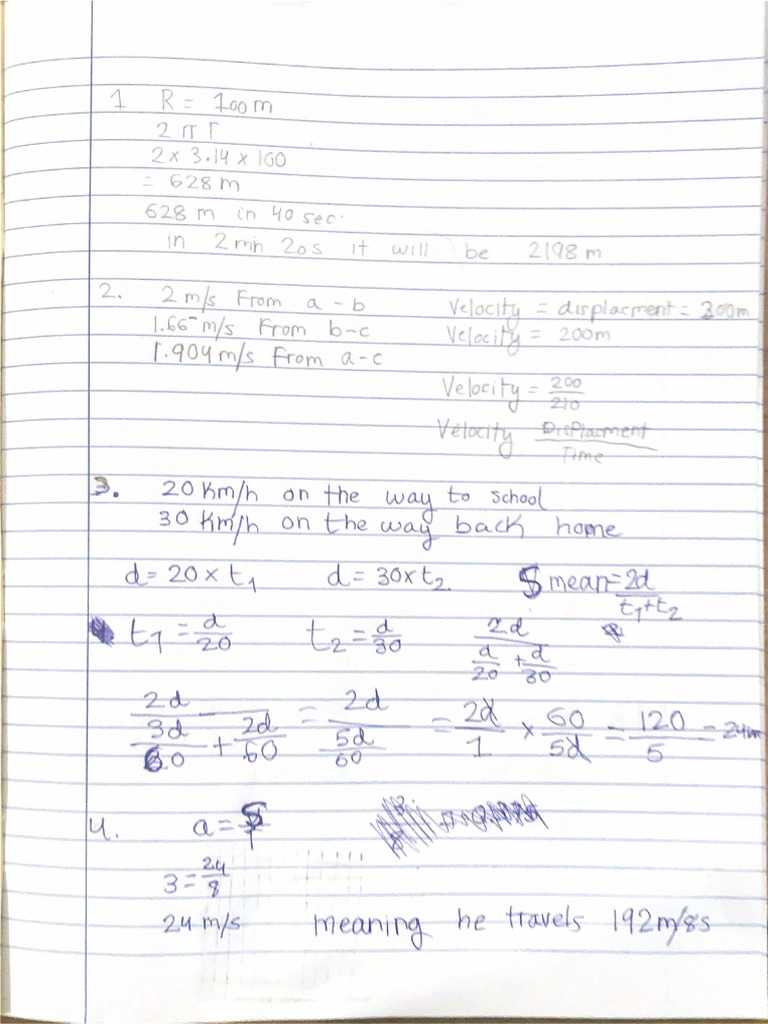 1 R = 100m
2 π r
2 x 3.14 x 100
= 628 m
628 m in 40 sec.
in 2 mn 20s it will be 2198 m
2. 2 m/s From a - b
1.66 m/s From b-c
1.904 m/s From a-c
Velocity = displacment = 300m
Velocity = 200m
Velocity = 200/210
Velocity Displacment/Time
3. 20 Km/h on the way to school
30 Km/h on the way back home
d = 20 x t1 d = 30xt2 S mean = 2d/t1+t2
t1 = d/20 t2 = d/30 2d/(d/20 + d/30)
2d/(3d/60 + 2d/60) = 2d/(5d/60) = 2d/1 x 60/5d = 120/5 = 24
4. a = S/T
3 = 24/8
24 m/s meaning he travels 192m/8s